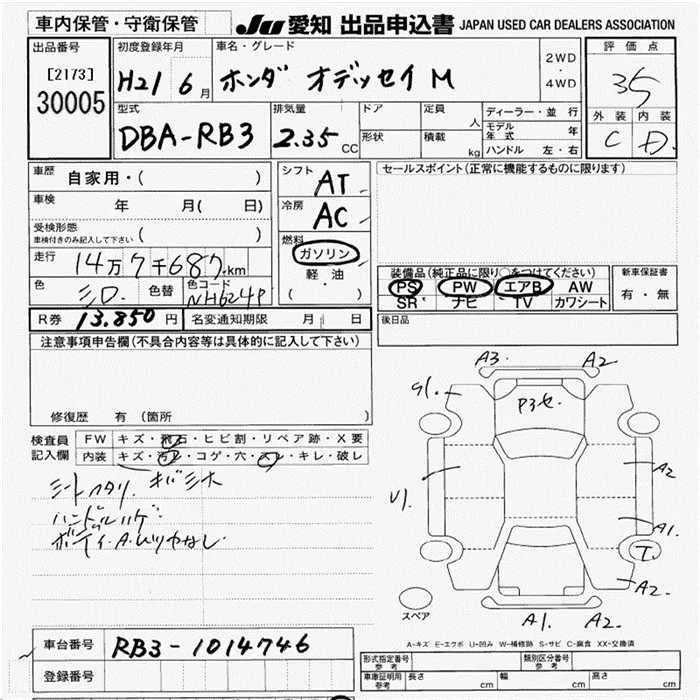 車内保管・守衛保管
JU 愛知 出品申込書 JAPAN USED CAR DEALERS ASSOCIATION
出品番号
[2173]
30005
初度登録年月
H21 6月
車名・グレード
ホンダ オデッセイ M
2WD
・
4WD
評価点
35
外装 内装
C D
型式
DBA-RB3
排気量
2.35 CC
ドア
形状
定員
人
積載
kg
ディーラー・並行
モデル年式 年
ハンドル 左・右
車歴
自家用・( )
車検
年 月( 日)
受検形態
車検付きのみ記入して下さい ( )
走行
14万7千687km
色
色替
色コード
NH624P
シフト
AT
冷房
AC
燃料
ガソリン
軽油
( ・ )
セールスポイント(正常に機能するものに限ります)
装備品(純正品に限り○をつけてください)
PS PW エアB AW
SR ナビ TV カワシート
新車保証書
有・無
R券 13.850円
名変通知期限 月 日
後日品
注意事項申告欄(不具合内容等は具体的に記入して下さい)
修復歴 有(箇所 )
検査員
記入欄
FW キズ・飛石・ヒビ割・リペア跡・X要
内装 キズ・汚レ・コゲ・穴・スレ・キレ・破レ
A3. A2
P3セ.
A2
A1.
T.
A2.
A1. A2.
スペア
A-キズ E-エクボ U-凹み W-補修跡 S-サビ C-腐食 XX-交換済
車台番号
RB3-1014746
登録番号
形式指定番号
参考
類別区分番号
参考
車庫証明用
参考
長さ cm 幅 cm 高さ cm